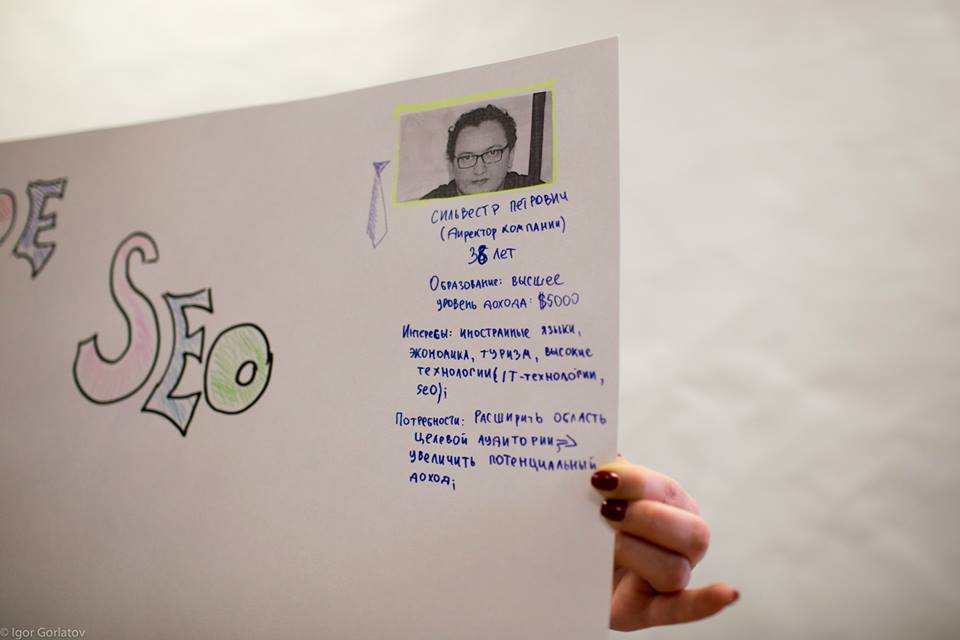 DE
SEO
СИЛЬВЕСТР ПЕТРОВИЧ
(ДИРЕКТОР КОМПАНИИ)
38 ЛЕТ
ОБРАЗОВАНИЕ: ВЫСШЕЕ
УРОВЕНЬ ДОХОДА: $5000
ИНТЕРЕСЫ: ИНОСТРАННЫЕ ЯЗЫКИ,
ЭКОНОМИКА, ТУРИЗМ, ВЫСОКИЕ
ТЕХНОЛОГИИ (IT-ТЕХНОЛОГИИ,
SEO);
ПОТРЕБНОСТИ: РАСШИРИТЬ ОБЛАСТЬ
ЦЕЛЕВОЙ АУДИТОРИИ, =>
УВЕЛИЧИТЬ ПОТЕНЦИАЛЬНЫЙ
ДОХОД;
© Igor Gorlatov